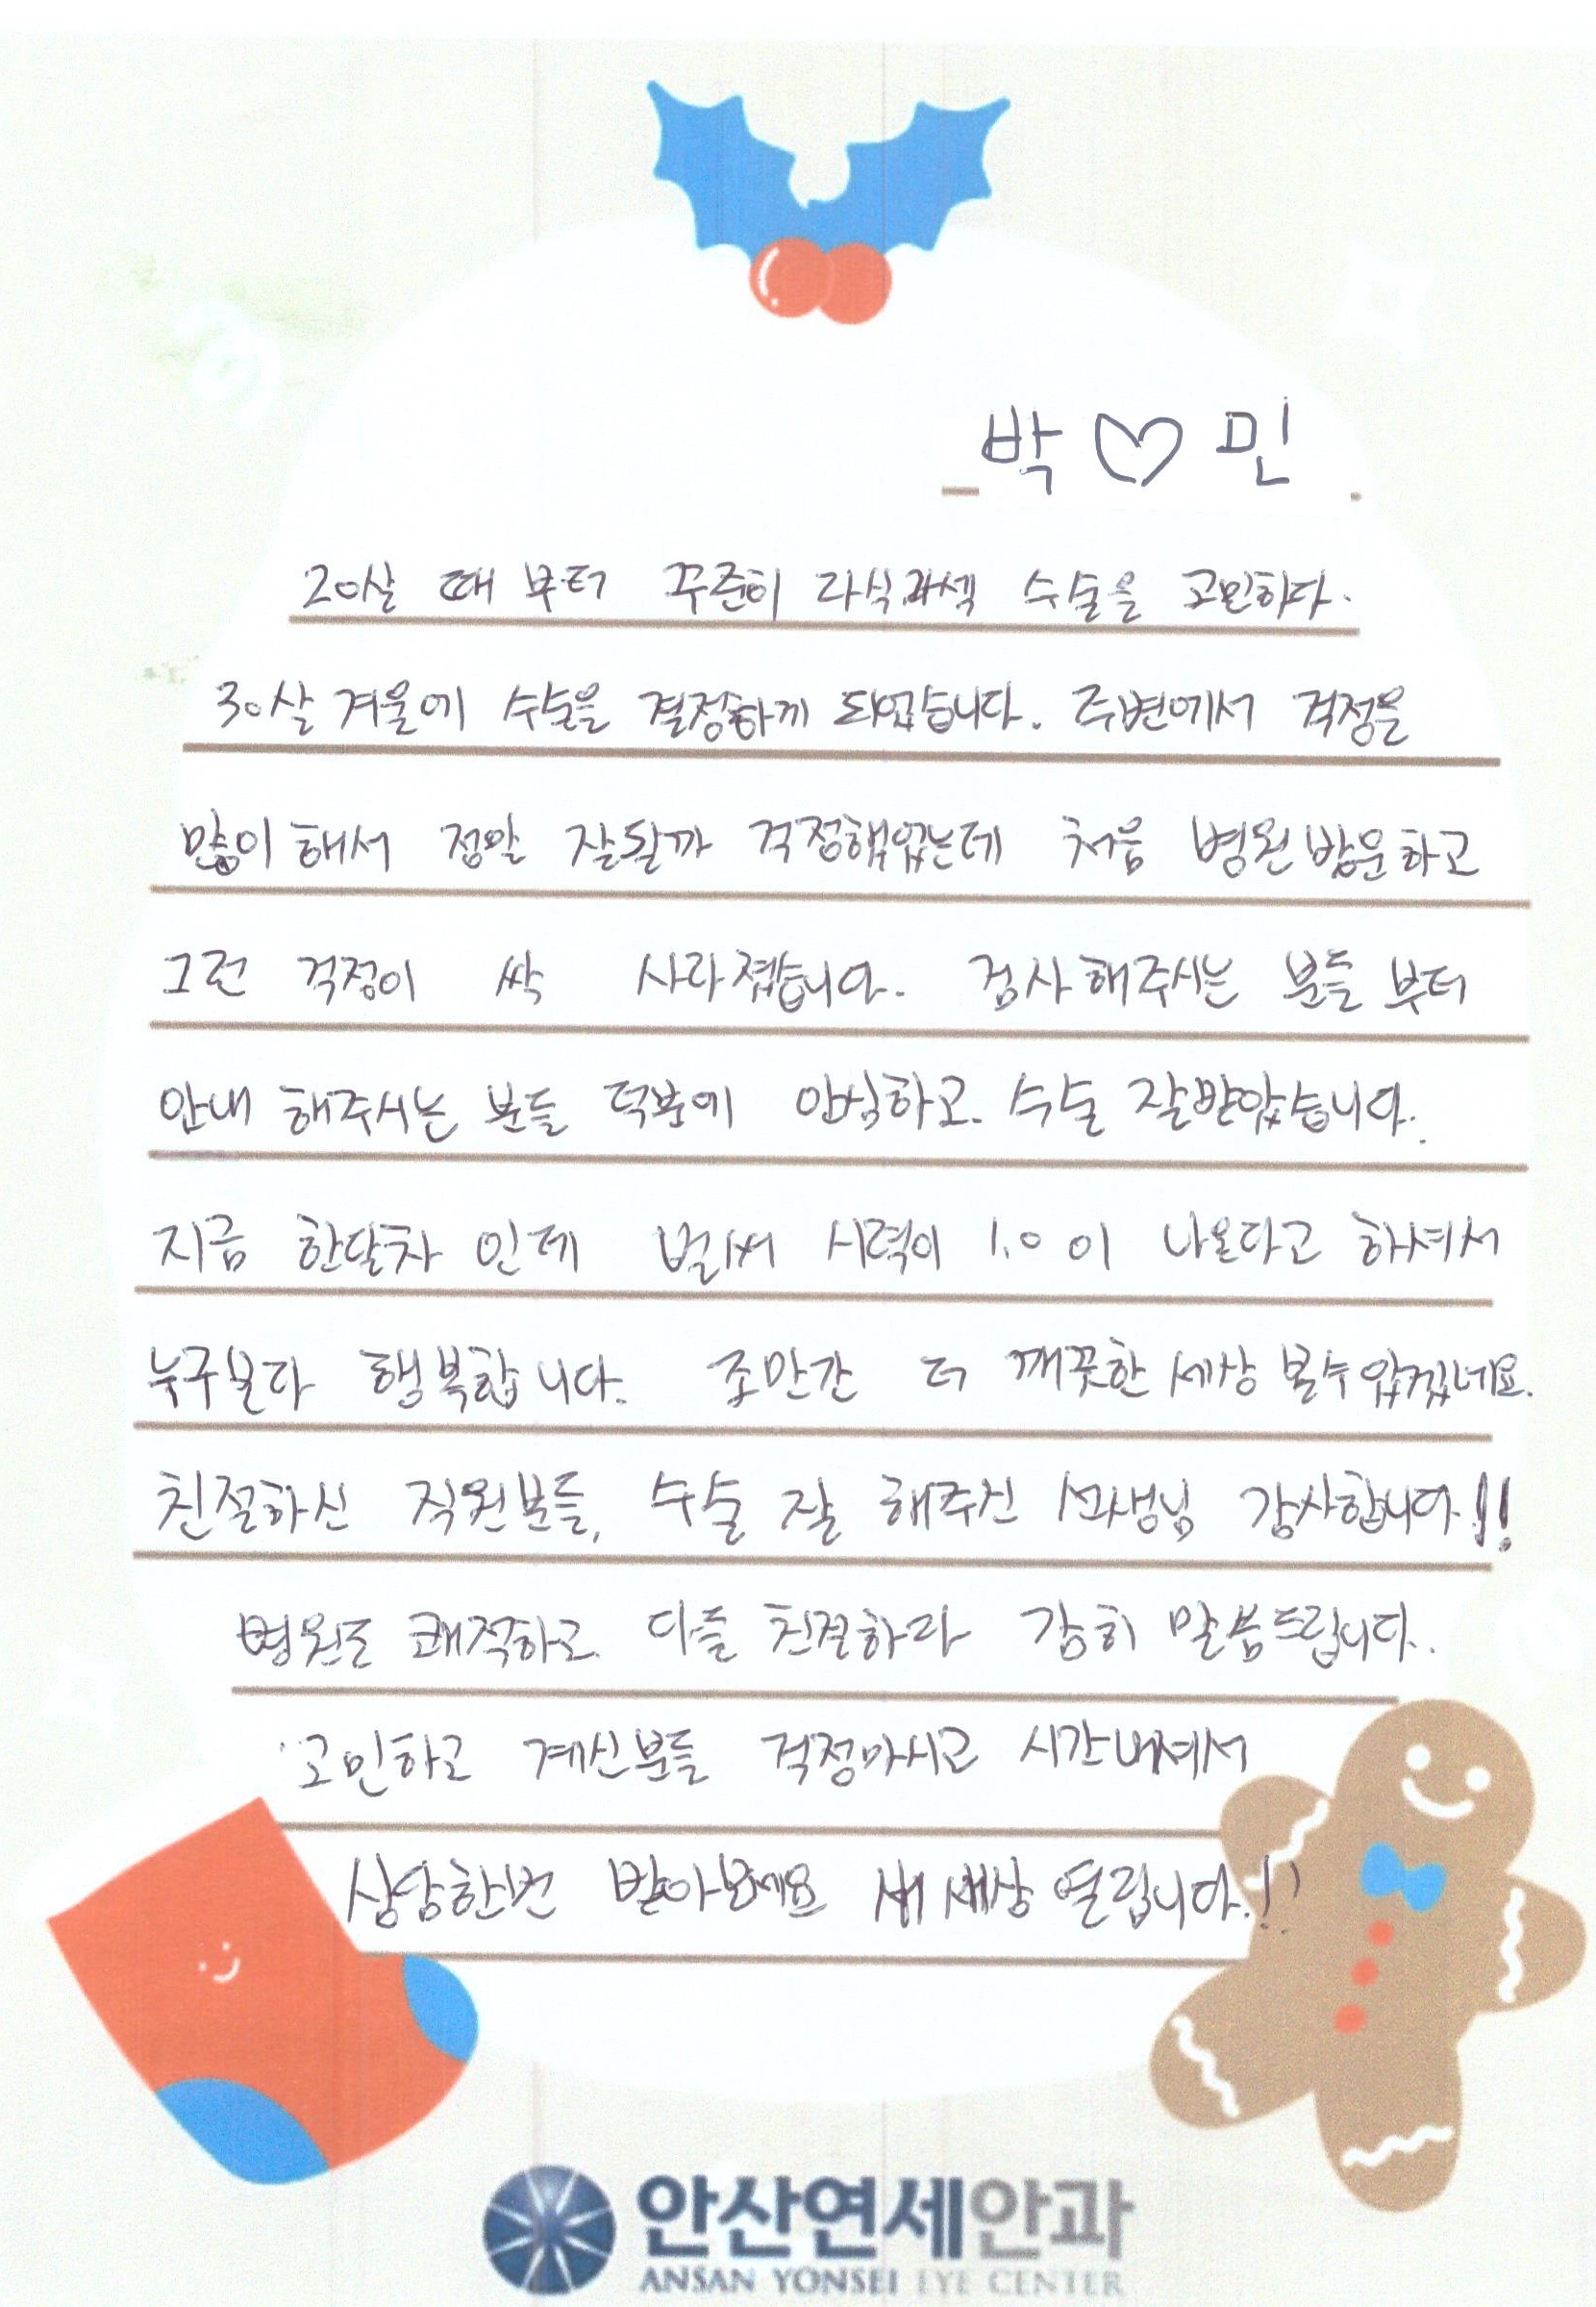 박♡민
20살 때 부터 꾸준히 라식라섹 수술을 고민하다.
30살 겨울에 수술을 결정하게 되었습니다. 주변에서 걱정을
많이 해서 정말 잘될까 걱정했었는데 처음 병원방문하고
그런 걱정이 싹 사라졌습니다. 검사해주시는 분들 부터
안내 해주시는 분들 덕분에 안심하고. 수술 잘받았습니다.
지금 한달차 인데 벌써 시력이 1.0 이 나온다고 하셔서
누구보다 행복합니다. 조만간 더 깨끗한 세상 볼수있겠네요.
친절하신 직원분들, 수술 잘 해주신 선생님 감사합니다!!
병원도 쾌적하고. 다들 친절하다 감히 말씀드립니다.
고민하고 계신분들 걱정마시고 시간내셔서
상담한번 받아보세요 새 세상 열립니다.!!
안산연세안과
ANSAN YONSEI EYE CENTER